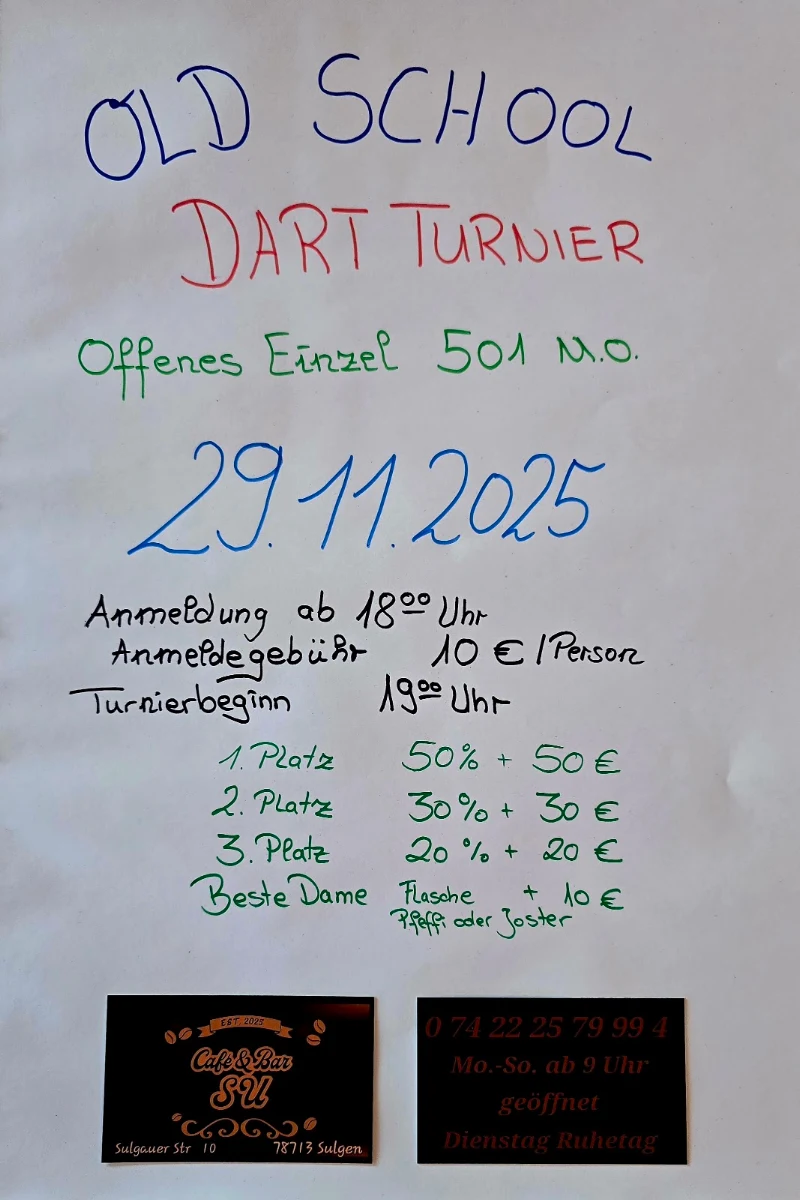 OLD SCHOOL
DART TURNIER
Offenes Einzel 501 M.O.
29.11.2025
Anmeldung ab 18⁰⁰ Uhr
Anmeldegebühr 10 € / Person
Turnierbeginn 19⁰⁰ Uhr
1. Platz 50% + 50 €
2. Platz 30% + 30 €
3. Platz 20% + 20 €
Beste Dame Flasche + 10 €
Pfeffi oder Joster
EST. 2025
Café & Bar
SU
Sulgauer Str 10 78713 Sulgen
0 74 22 25 79 99 4
Mo.-So. ab 9 Uhr
geöffnet
Dienstag Ruhetag